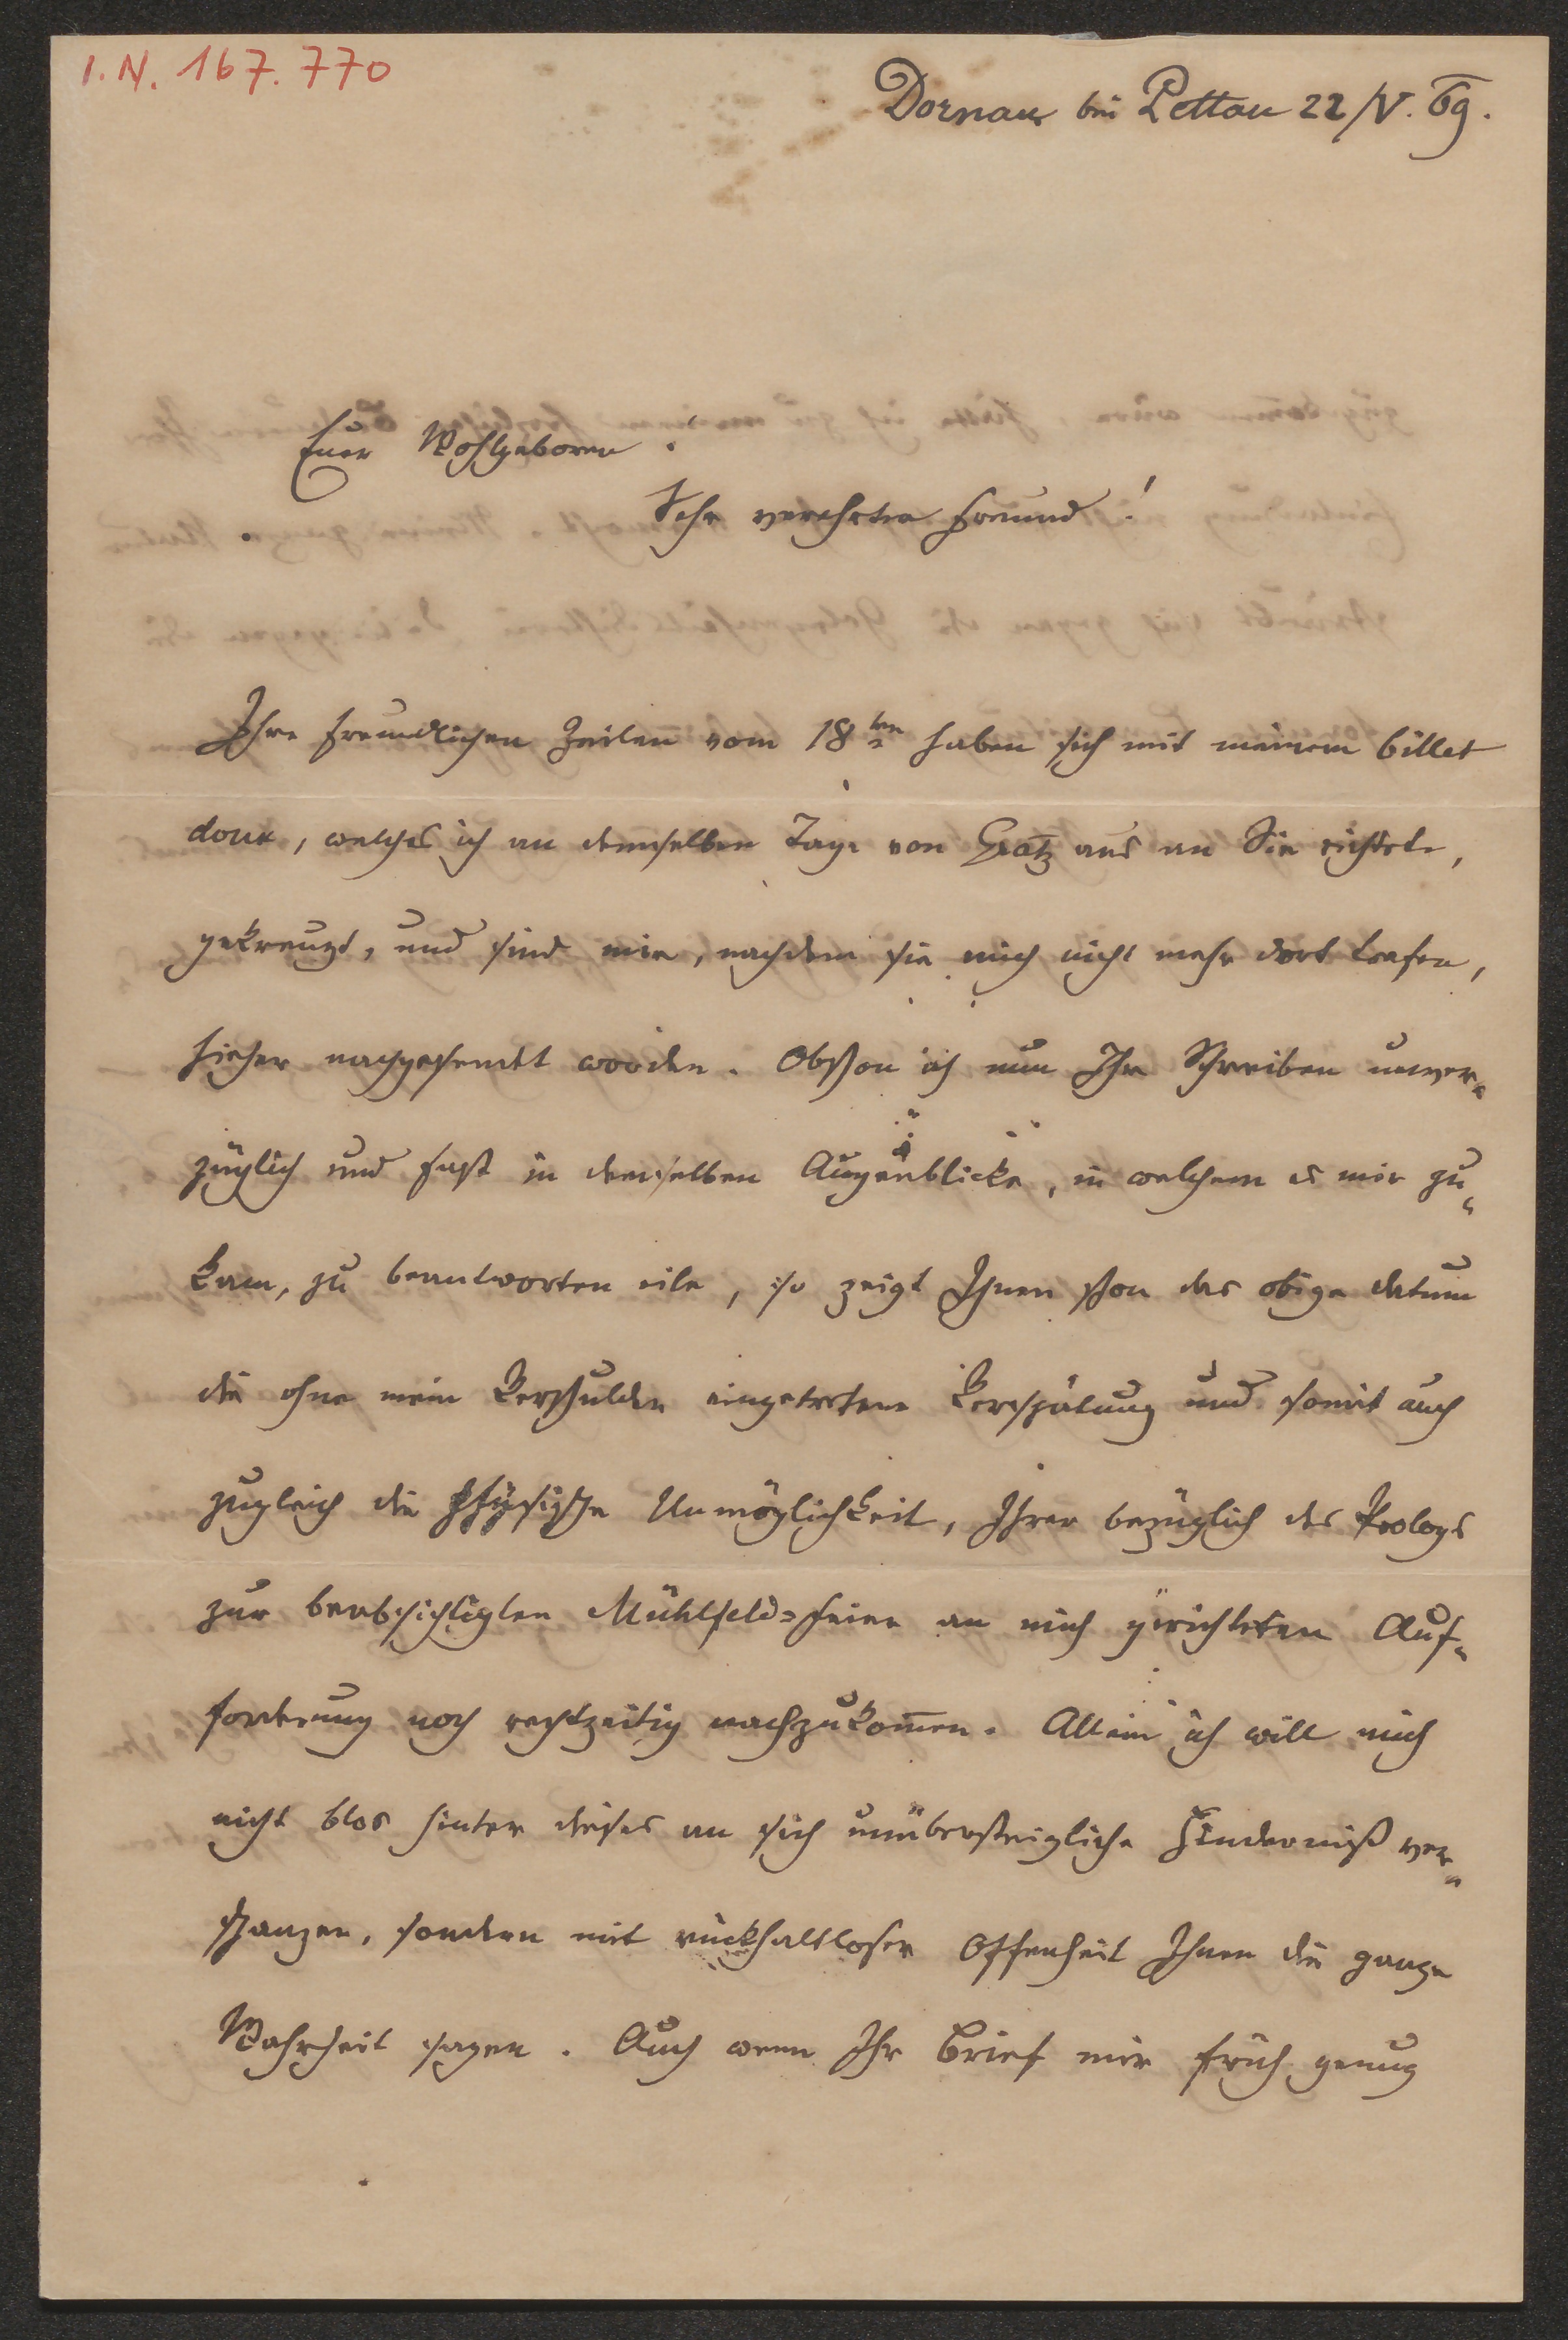 I. N. 167.770
Dornau bei Pettau 22/V. 69.
Euer Wohlgeboren!
Sehr verehrter Freund!
Ihre freundlichen Zeilen vom 18ten haben sich mit meinem billet
doux, welches ich an demselben Tage von Gratz aus an Sie richtete,
gekreuzt, und sind mir, nachdem sie mich nicht mehr dort trafen,
hieher nachgesendet worden. Obschon ich nun Ihr Schreiben unver-
züglich und fast in demselben Augenblicke, in welchem es mir zu-
kam, zu beantworten eile, so zeigt Ihnen schon das obige datum
die ohne mein Verschulden eingetretene Verspätung und somit auch
zugleich die phÿsische Unmöglichkeit, Ihrer bezüglich des Prologs
zur beabsichtigten Mühlfeld=Feier an mich gerichteten Auf-
forderung noch rechtzeitig nachzukom̄en. Allein ich will mich
nicht blos hinter dieses an sich unübersteigliche Hinderniß ver-
schanzen, sondern mit rückhaltloser Offenheit Ihnen die ganze
Wahrheit sagen. Auch wenn Ihr Brief mir früh genug